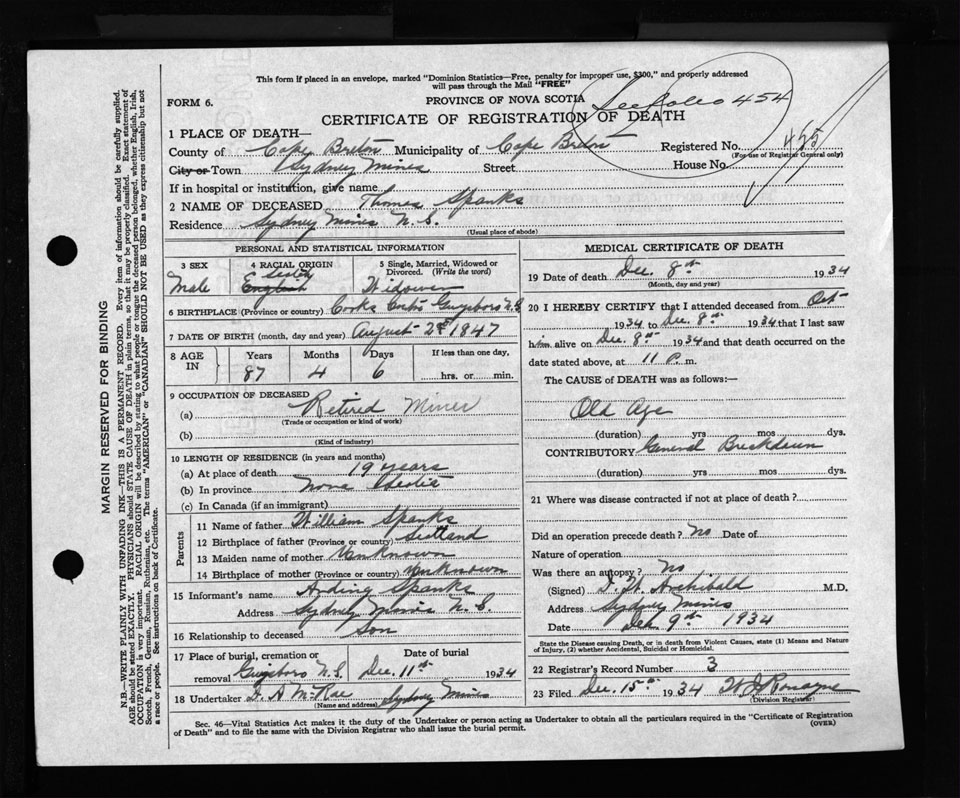 This form if placed in an envelope, marked "Dominion Statistics—Free, penalty for improper use, $300," and properly addressed
will pass through the Mail "FREE"
FORM 6.
PROVINCE OF NOVA SCOTIA
See folio 454
CERTIFICATE OF REGISTRATION OF DEATH
1 PLACE OF DEATH—
County of Cape Breton Municipality of Cape Breton Registered No. 455
(For use of Registrar General only)
City or Town Sydney Mines Street House No.
If in hospital or institution, give name
2 NAME OF DECEASED Thomas Spanks
Residence Sydney Mines N.S.
(Usual place of abode)
PERSONAL AND STATISTICAL INFORMATION
3 SEX 4 RACIAL ORIGIN 5 Single, Married, Widowed or
Divorced. (Write the word)
Male Scotch English Widower
6 BIRTHPLACE (Province or country) Guysboro N.S.
7 DATE OF BIRTH (month, day and year) August 2nd 1847
8 AGE IN Years Months Days If less than one day,
87 4 6 hrs. or min.
9 OCCUPATION OF DECEASED
(a) Retired Miner
(Trade or occupation or kind of work)
(b)
(Kind of industry)
10 LENGTH OF RESIDENCE (in years and months)
(a) At place of death 19 years
(b) In province Nova Scotia
(c) In Canada (if an immigrant)
Parents
11 Name of father William Spanks
12 Birthplace of father (Province or country) Scotland
13 Maiden name of mother Unknown
14 Birthplace of mother (Province or country) Unknown
15 Informant's name Spanks
Address Sydney Mines N.S.
16 Relationship to deceased Son
17 Place of burial, cremation or Date of burial
removal Guysboro N.S. Dec. 11th 1934
18 Undertaker D. A McRae Sydney Mines
(Name and address)
MEDICAL CERTIFICATE OF DEATH
19 Date of death Dec. 8th 1934
(Month, day and year)
20 I HEREBY CERTIFY that I attended deceased from Oct-
1934 to Dec. 8th 1934 that I last saw
him alive on Dec. 8th 1934 and that death occurred on the
date stated above, at 11 P. m.
The CAUSE of DEATH was as follows:—
Old Age
(duration) yrs mos dys.
CONTRIBUTORY General Breakdown
(duration) yrs. mos. dys.
21 Where was disease contracted if not at place of death?
Did an operation precede death? No Date of
Nature of operation
Was there an autopsy? No
(Signed) Archibald M.D.
Address Sydney Mines
Date Dec 9th 1934
State the Disease causing Death, or in death from Violent Causes, state (1) Means and Nature
of Injury, (2) whether Accidental, Suicidal or Homicidal.
22 Registrar's Record Number 3
23 Filed Dec. 15th 1934
(Division Registrar)
Sec. 46—Vital Statistics Act makes it the duty of the Undertaker or person acting as Undertaker to obtain all the particulars required in the "Certificate of Registration
of Death" and to file the same with the Division Registrar who shall issue the burial permit.
(OVER)
MARGIN RESERVED FOR BINDING
N.B.—WRITE PLAINLY WITH UNFADING INK—THIS IS A PERMANENT RECORD. Every item of information should be carefully supplied.
AGE should be stated EXACTLY. PHYSICIANS should STATE CAUSE OF DEATH in plain terms, so that it may be properly classified. Exact statement of
OCCUPATION is very important. RACIAL ORIGIN will be described by stating to what people or tongue the deceased person belonged, whether English, Irish,
Scotch, French, German, Russian, Ruthenian, etc. The terms "AMERICAN" or "CANADIAN" SHOULD NOT BE USED as they express citizenship but not
a race or people. See instructions on back of Certificate.